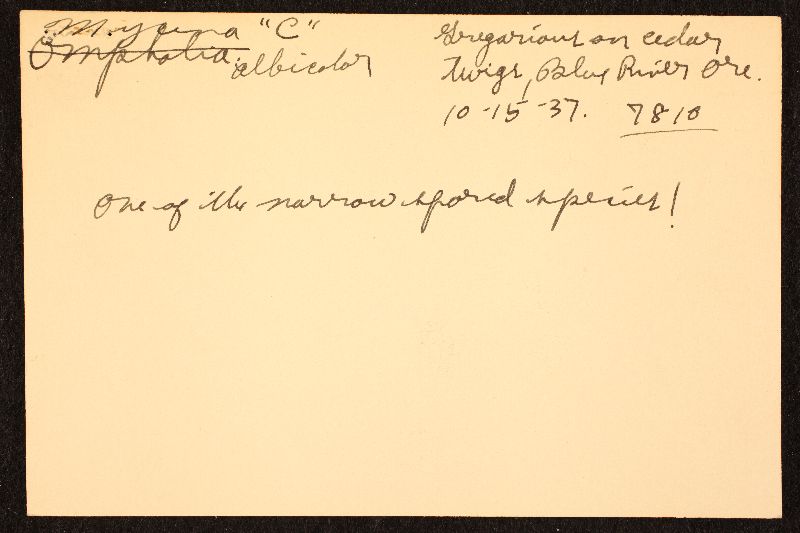 Mycena "C"
Omphalia albicolor
Gregarious on cedar
twigs, Blue River Ore.
10-15-37. 7810
One of the narrow spored species!